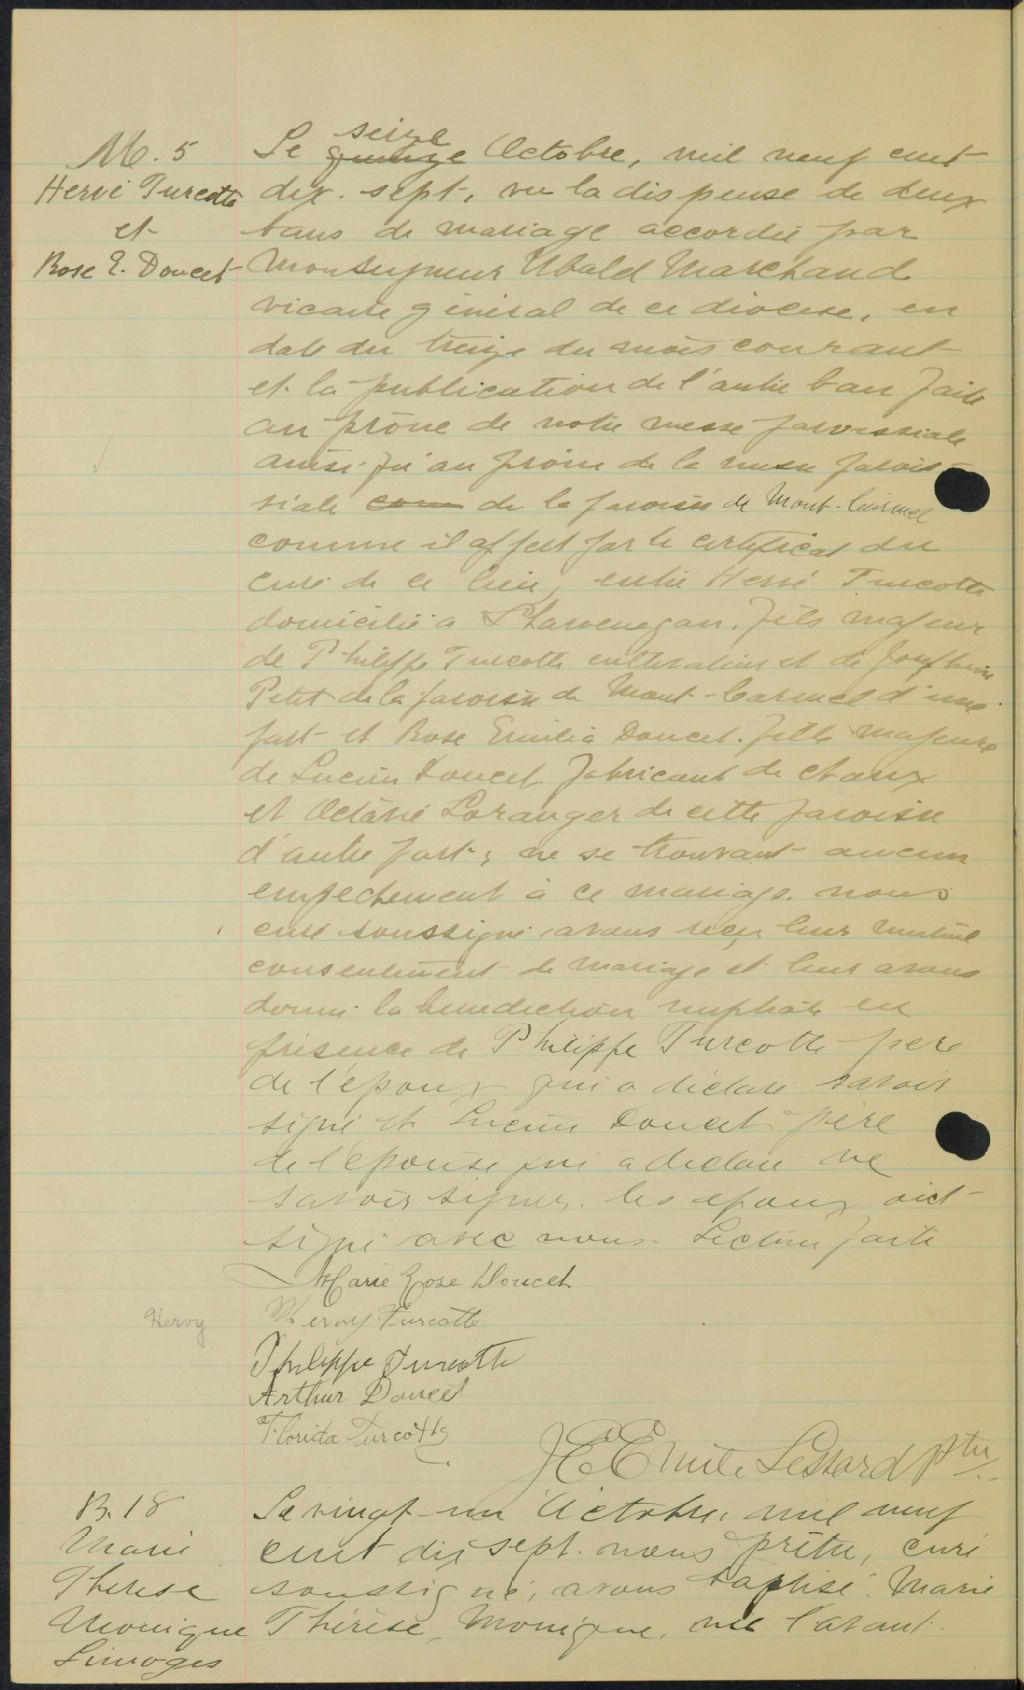 M. 5
Hervé Turcotte
et
Rose E. Doucet
Le quinze seize Octobre, mil neuf cent
dix-sept, vu la dispense de deux
bans de mariage accordée par
Monseigneur Ubald Marchand
vicaire général de ce diocèse, en
date du treize du mois courant
et la publication de l'autre ban faite
au prône de notre messe paroissiale
ainsi qu'au prône de la messe parois-
siale de la paroisse de Mont-Carmel
comme il appert par le certificat du
curé de ce lieu, entre Hervé Turcotte
domicilié à Shawenegan, fils majeur
de Philippe Turcotte cultivateur et de Josephine
Petit de la paroisse de Mont-Carmel d'une
part et Rose Emilia Doucet fille majeure
de Lucien Doucet fabricant de chaux
et Octavie Loranger de cette paroisse
d'autre part; ne se trouvant aucun
empechement à ce mariage nous
curé soussigné avons reçu leur mutuel
consentement de mariage et leur avons
donné la benediction nuptiale en
présence de Philippe Turcotte père
de l'époux qui a déclaré savoir
signé et Lucien Doucet père
de l'épouse qui a déclaré ne
savoir signer. les époux ont
signé avec nous. Lecture faite
Marie Rose Doucet
Hervy
Hervy Turcotte
Philippe Turcotte
Arthur Doucet
Florida Turcotte
J E Emile Lessard Ptre
B. 18
Marie
Therese
Monique
Limoges
Le vingt-un Octobre, mil neuf
cent dix sept. nous prêtre, curé
soussigné, avons baptisé Marie
Thérèse, Monique, née l'avant